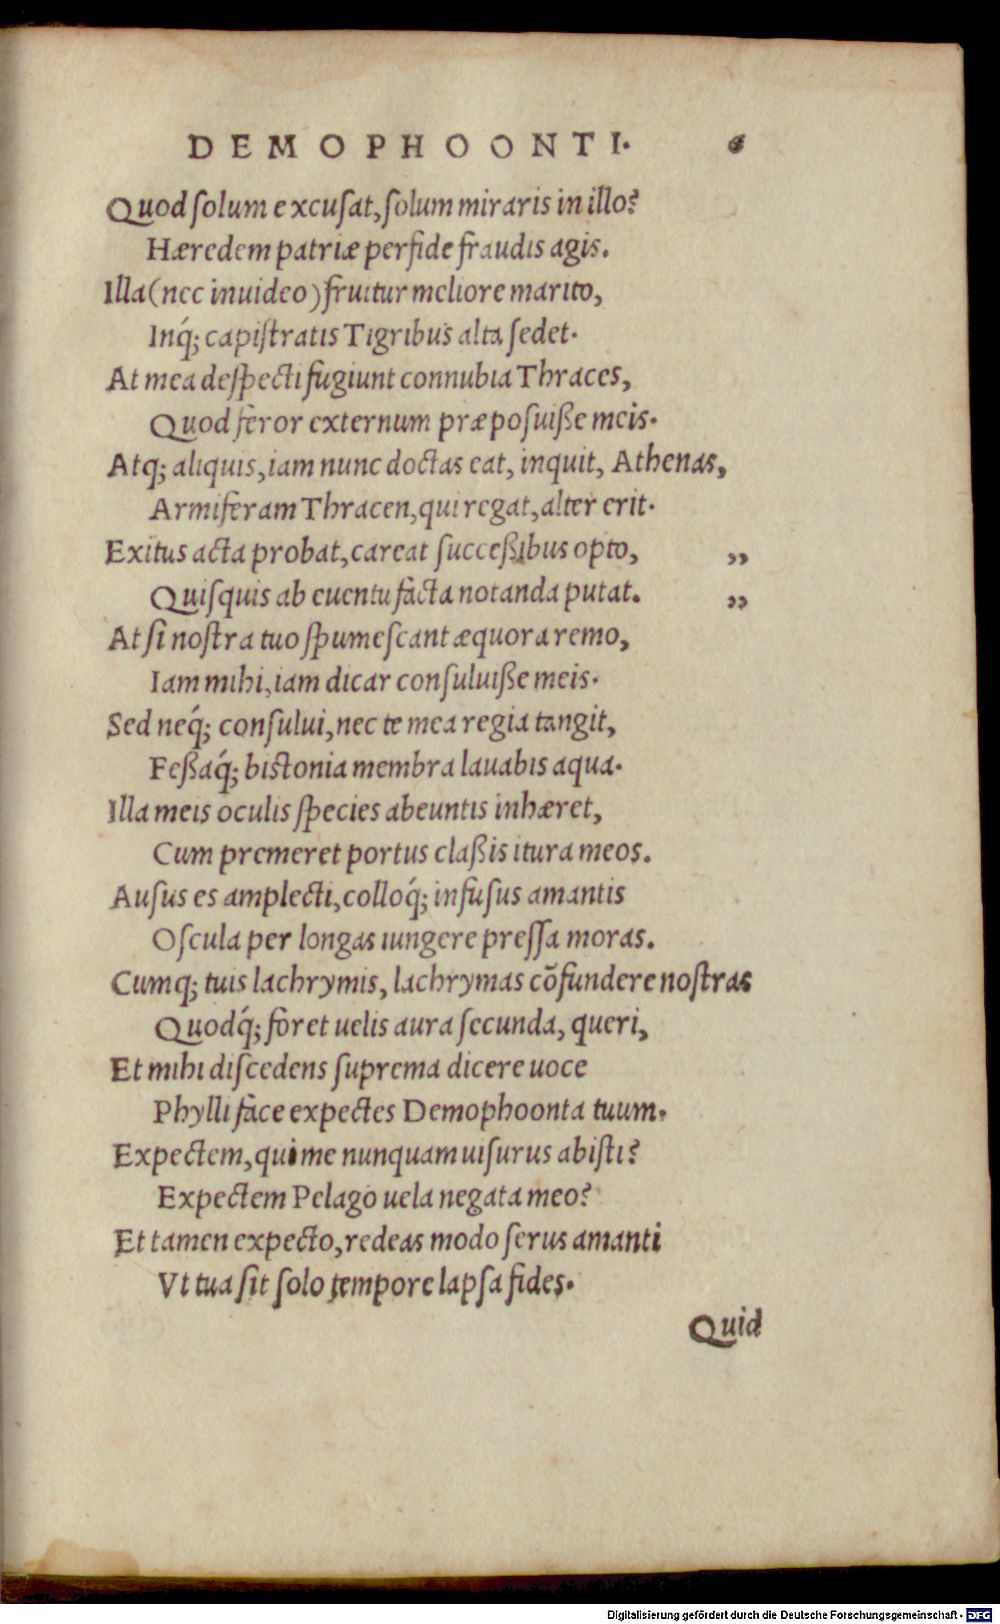 DEMOPHOONTI.
Quod solum excusat, solum miraris in illo?
Hæredem patriæ perfide fraudis agis.
Illa (nec inuideo) fruitur meliore marito,
Inq́; capistratis Tigribus alta sedet.
At mea despecti fugiunt connubia Thraces,
Quod feror externum præposuisse meis.
Atq; aliquis, iam nunc doctas eat, inquit, Athenas,
Armiferam Thracen, qui regat, alter erit.
Exitus acta probat, careat successibus opto, ,,
Quisquis ab euentu facta notanda putat. ,,
At si nostra tuo spumescant æquora remo,
Iam mihi, iam dicar consuluisse meis.
Sed neq́; consului, nec te mea regia tangit,
Fessaq́; bistonia membra lauabis aqua.
Illa meis oculis species abeuntis inhæret,
Cum premeret portus classis itura meos.
Ausus es amplecti, colloq́; infusus amantis
Oscula per longas iungere pressa moras.
Cumq; tuis lachrymis, lachrymas cõfundere nostras
Quodq́; foret uelis aura secunda, queri,
Et mihi discedens suprema dicere uoce
Phylli face expectes Demophoonta tuum.
Expectem, qui me nunquam uisurus abisti?
Expectem Pelago uela negata meo?
Et tamen expecto, redeas modo serus amanti
Vt tua sit solo tempore lapsa fides.
Quid
Digitalisierung gefördert durch die Deutsche Forschungsgemeinschaft - DFG